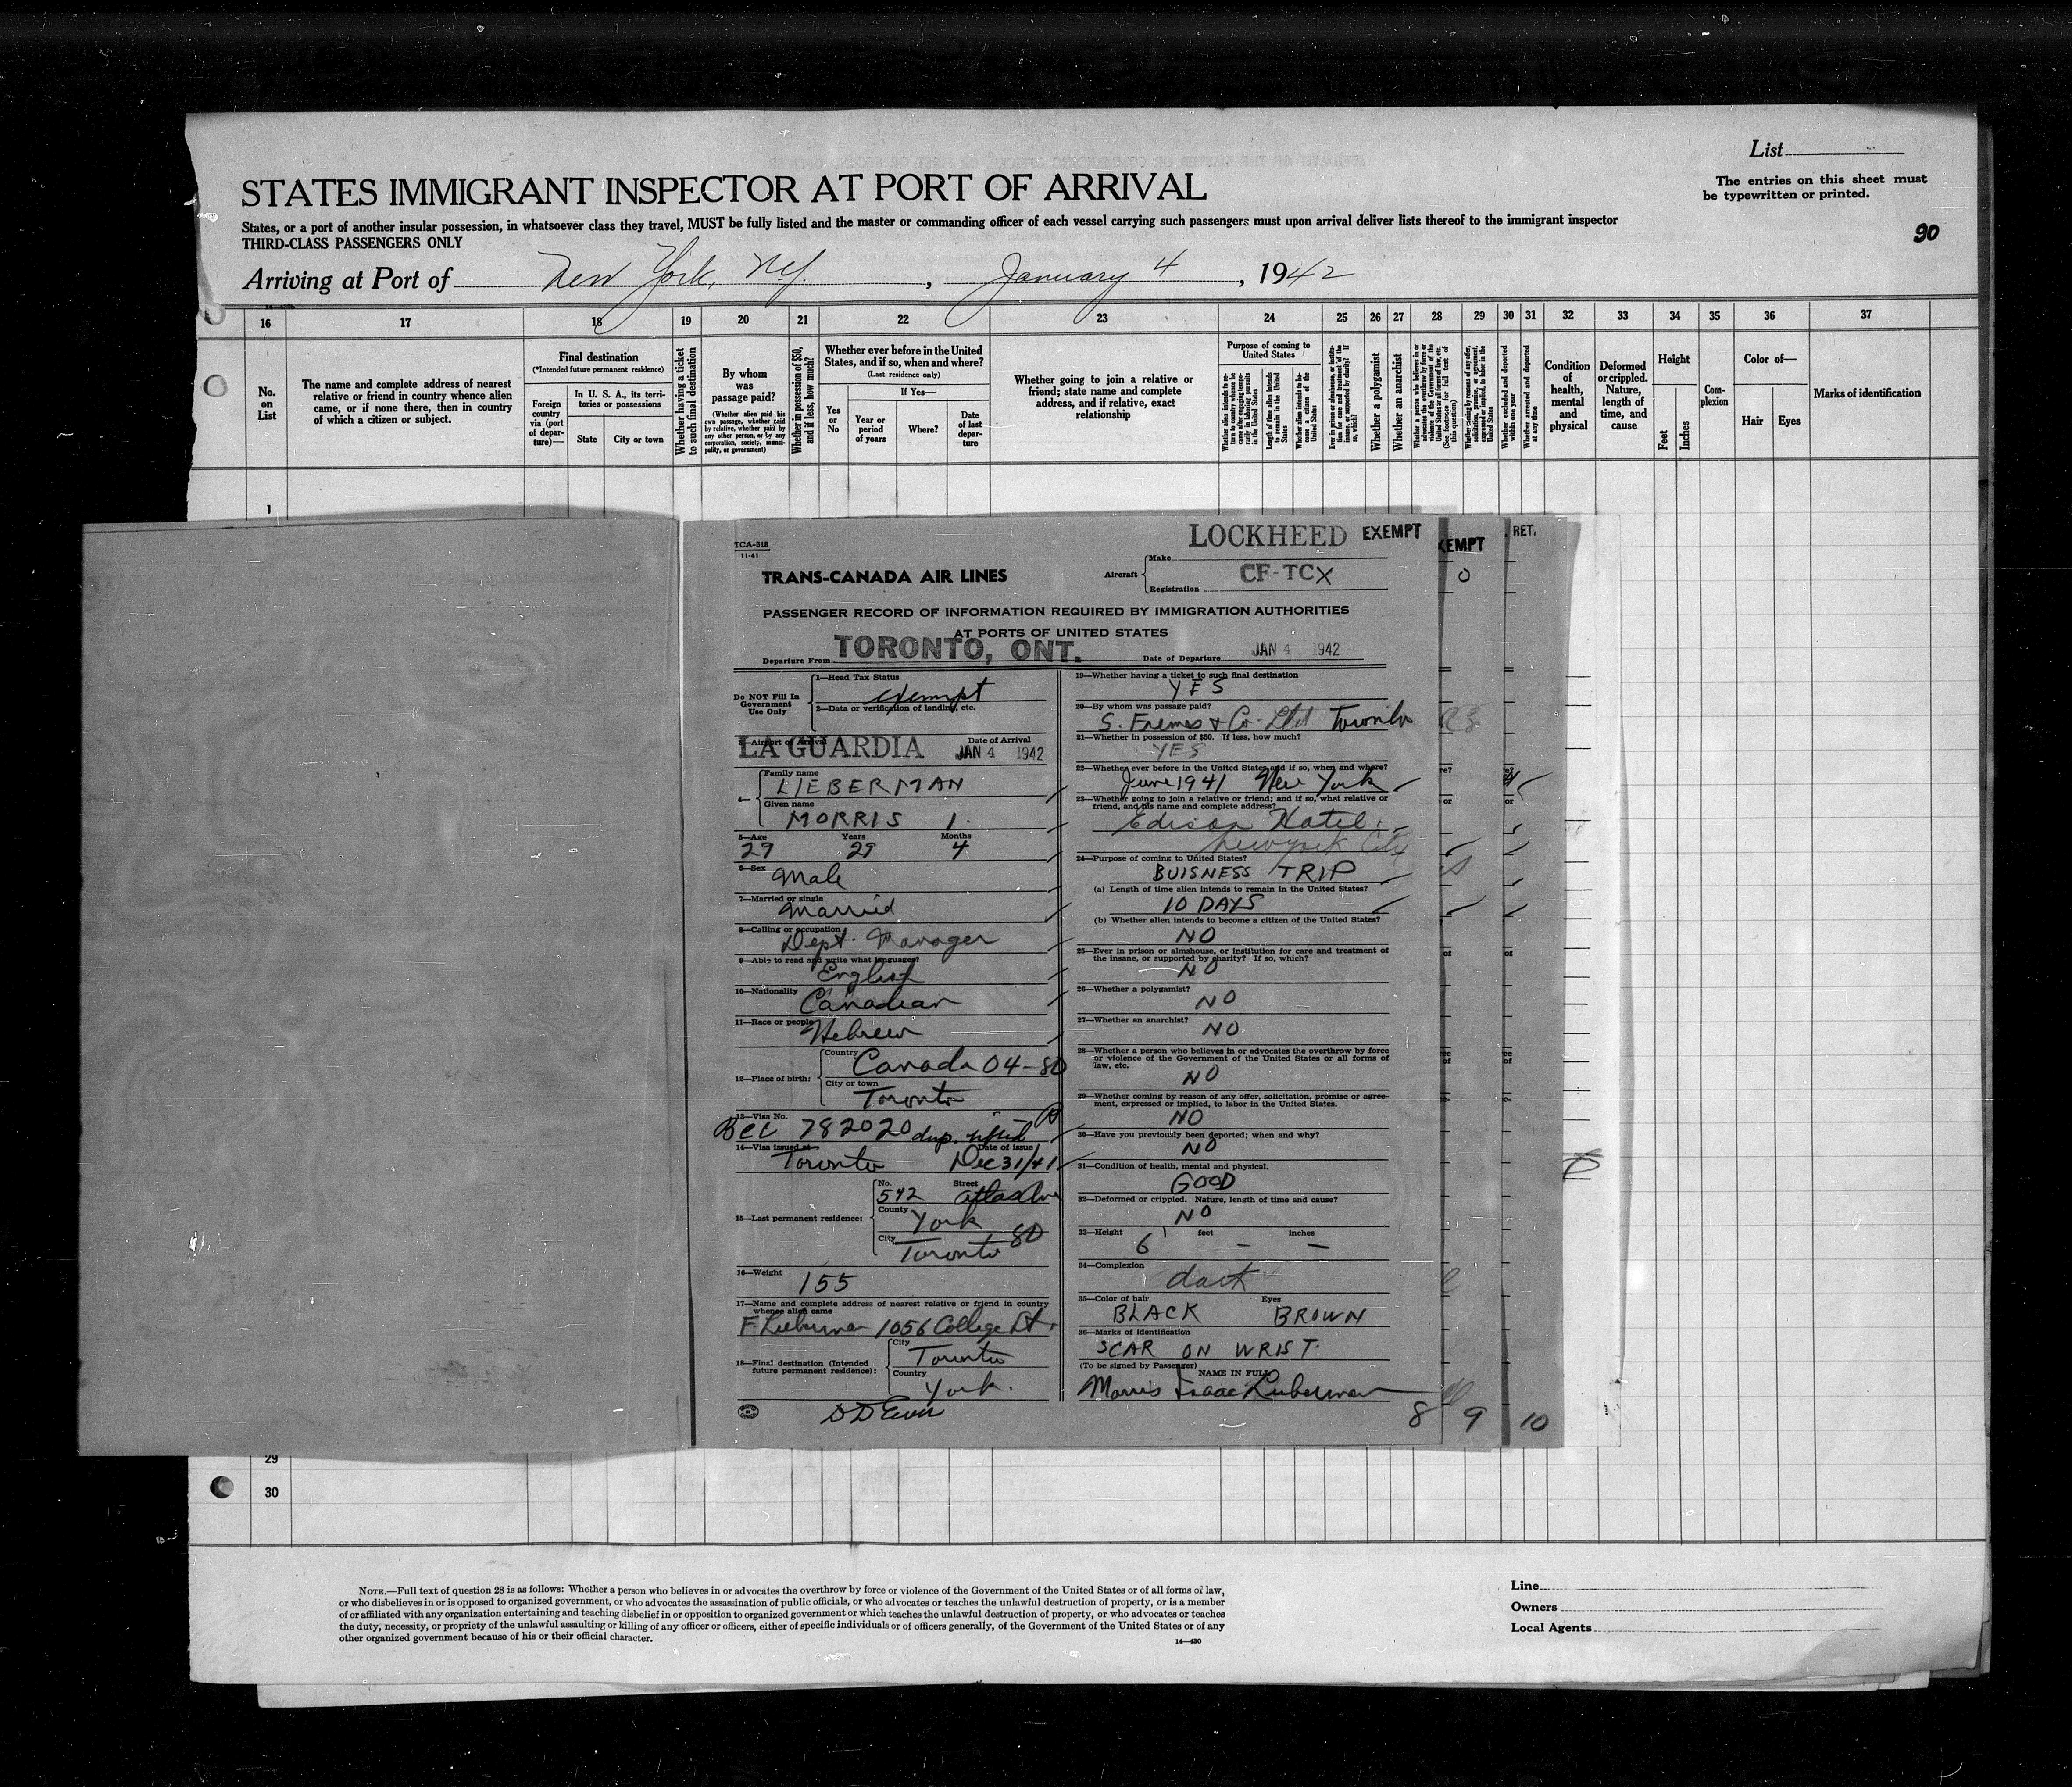 List
The entries on this sheet must
be typewritten or printed.
STATES IMMIGRANT INSPECTOR AT PORT OF ARRIVAL
States, or a port of another insular possession, in whatsoever class they travel, MUST be fully listed and the master or commanding officer of each vessel carrying such passengers must upon arrival deliver lists thereof to the immigrant inspector
THIRD-CLASS PASSENGERS ONLY
90
Arriving at Port of New York, N.Y. , January 4 , 1942
16 17 18 19 20 21 22 23 24 25 26 27 28 29 30 31 32 33 34 35 36 37
No.
on
List
The name and complete address of nearest
relative or friend in country whence alien
came, or if none there, then in country
of which a citizen or subject.
Final destination
(*Intended future permanent residence)
Foreign
country
via (port
of depar-
ture)—
In U. S. A., its terri-
tories or possessions
State City or town
Whether having a ticket
to such final destination
By whom
was
passage paid?
(Whether alien paid his
own passage, whether paid
by relative, whether paid by
any other person, or by any
corporation, society, munici-
pality, or government)
Whether in possession of $50,
and if less, how much?
Whether ever before in the United
States, and if so, when and where?
(Last residence only)
Yes
or
No
If Yes—
Year or
period
of years
Where?
Date
of last
depar-
ture
Whether going to join a relative or
friend; state name and complete
address, and if relative, exact
relationship
Purpose of coming to
United States
Length of time alien intends
to remain in the United
States
Whether alien intends to be-
come a citizen of the
United States
Whether a polygamist
Whether an anarchist
Whether excluded and deported
within one year
Whether arrested and deported
at any time
Condition
of
health,
mental
and
physical
Deformed
or crippled.
Nature,
length of
time, and
cause
Height
Feet
Inches
Com-
plexion
Color of—
Hair Eyes
Marks of identification
1
TCA-318
11-41
TRANS-CANADA AIR LINES
Aircraft
Make LOCKHEED EXEMPT
Registration CF-TCX
PASSENGER RECORD OF INFORMATION REQUIRED BY IMMIGRATION AUTHORITIES
AT PORTS OF UNITED STATES
Departure From TORONTO, ONT. Date of Departure JAN 4 1942
Do NOT Fill In
Government
Use Only
1—Head Tax Status
exempt
2—Data or verification of landing, etc.
3—Airport of Arrival Date of Arrival
LA GUARDIA JAN 4 1942
4—
Family name
LIEBERMAN
Given name
MORRIS I.
5—Age Years Months
29 29 4
6—Sex Male
7—Married or single
Married
8—Calling or occupation
Dept. Manager
9—Able to read and write what languages?
English
10—Nationality
Canadian
11—Race or people
Hebrew
12—Place of birth:
Country
Canada 04-80
City or town
Toronto
13—Visa No.
BCC 782020 dup.
14—Visa issued at Date of issue
Toronto Dec 31/41
15—Last permanent residence:
No. Street
542 Atlas Ave
County
York 80
City
Toronto
16—Weight 155
17—Name and complete address of nearest relative or friend in country
whence alien came
F Lieberman 1056 College St.
18—Final destination (Intended
future permanent residence):
City
Toronto
Country
York.
19—Whether having a ticket to such final destination
YES
20—By whom was passage paid?
S. Fremes & Co. Ltd Toronto
21—Whether in possession of $50. If less, how much?
YES
22—Whether ever before in the United States and if so, when and where?
June 1941 New York
23—Whether going to join a relative or friend; and if so, what relative or
friend, and his name and complete address?
Edison Hotel.
New York City
24—Purpose of coming to United States?
BUISNESS TRIP
(a) Length of time alien intends to remain in the United States?
10 DAYS
(b) Whether alien intends to become a citizen of the United States?
NO
25—Ever in prison or almshouse, or institution for care and treatment of
the insane, or supported by charity? If so, which?
NO
26—Whether a polygamist?
NO
27—Whether an anarchist?
NO
28—Whether a person who believes in or advocates the overthrow by force
or violence of the Government of the United States or all forms of
law, etc.
NO
29—Whether coming by reason of any offer, solicitation, promise or agree-
ment, expressed or implied, to labor in the United States.
NO
30—Have you previously been deported; when and why?
NO
31—Condition of health, mental and physical.
GOOD
32—Deformed or crippled. Nature, length of time and cause?
NO
33—Height feet inches
6' — —
34—Complexion
dark
35—Color of hair Eyes
BLACK BROWN
36—Marks of identification
SCAR ON WRIST.
(To be signed by Passenger)
NAME IN FULL
Morris Isaac Lieberman
8 9 10
EMPT
RET.
29
30
NOTE.—Full text of question 28 is as follows: Whether a person who believes in or advocates the overthrow by force or violence of the Government of the United States or of all forms of law,
or who disbelieves in or is opposed to organized government, or who advocates the assassination of public officials, or who advocates or teaches the unlawful destruction of property, or is a member
of or affiliated with any organization entertaining and teaching disbelief in or opposition to organized government or which teaches the unlawful destruction of property, or who advocates or teaches
the duty, necessity, or propriety of the unlawful assaulting or killing of any officer or officers, either of specific individuals or of officers generally, of the Government of the United States or of any
other organized government because of his or their official character.
14—430
Line
Owners
Local Agents